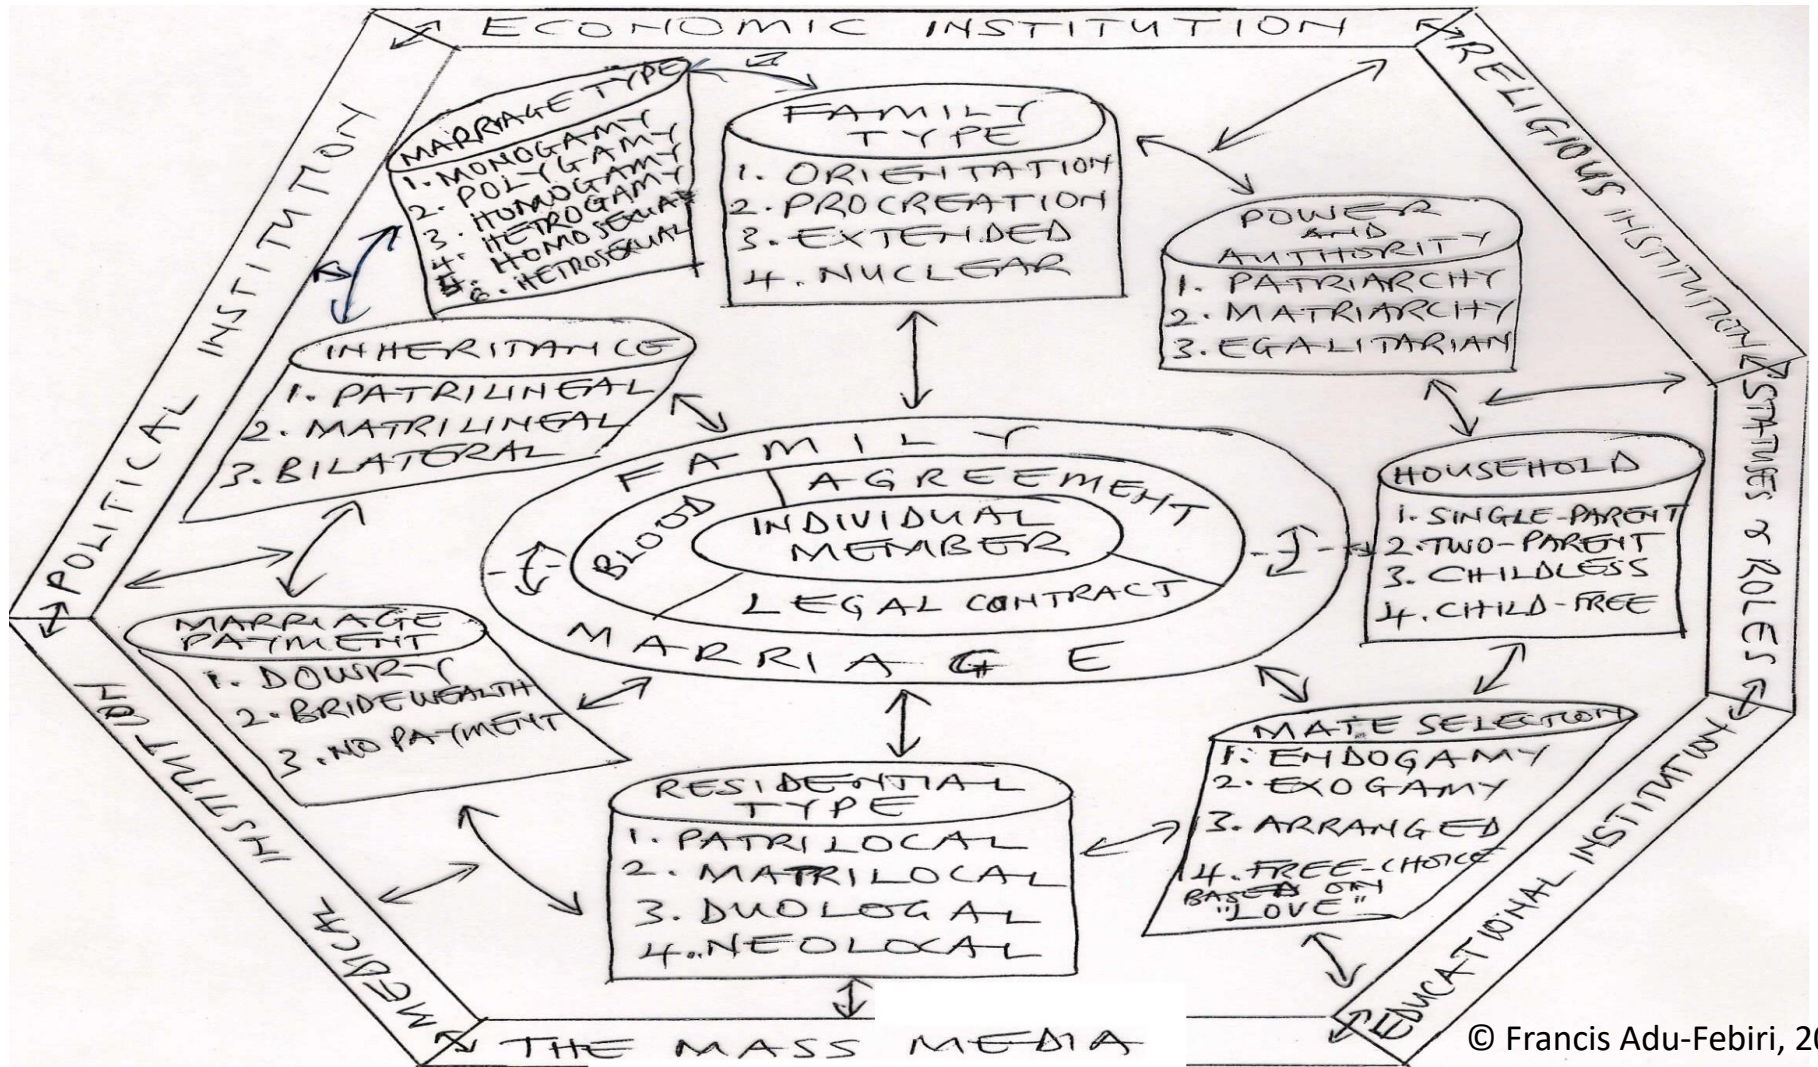 ECONOMIC INSTITUTION
RELIGIOUS INSTITUTION
STATUSES & ROLES
EDUCATIONAL INSTITUTION
THE MASS MEDIA
MEDICAL INSTITUTION
POLITICAL INSTITUTION
MARRIAGE TYPE
1. MONOGAMY
2. POLYGAMY
3. HOMOGAMY
4. HETROGAMY
HOMOSEXUAL
6. HETROSEXUAL
FAMILY
TYPE
1. ORIENTATION
2. PROCREATION
3. EXTENDED
4. NUCLEAR
POWER
AND
AUTHORITY
1. PATRIARCHY
2. MATRIARCHY
3. EGALITARIAN
INHERITANCE
1. PATRILINEAL
2. MATRILINEAL
3. BILATERAL
HOUSEHOLD
1. SINGLE-PARENT
2. TWO-PARENT
3. CHILDLESS
4. CHILD-FREE
FAMILY
BLOOD
AGREEMENT
INDIVIDUAL
MEMBER
LEGAL CONTRACT
MARRIAGE
MARRIAGE
PAYMENT
1. DOWRY
2. BRIDEWEALTH
3. NO PAYMENT
RESIDENTIAL
TYPE
1. PATRILOCAL
2. MATRILOCAL
3. DUOLOCAL
4. NEOLOCAL
MATE SELECTION
1. ENDOGAMY
2. EXOGAMY
3. ARRANGED
4. FREE-CHOICE
BASED ON
"LOVE"
© Francis Adu-Febiri, 20